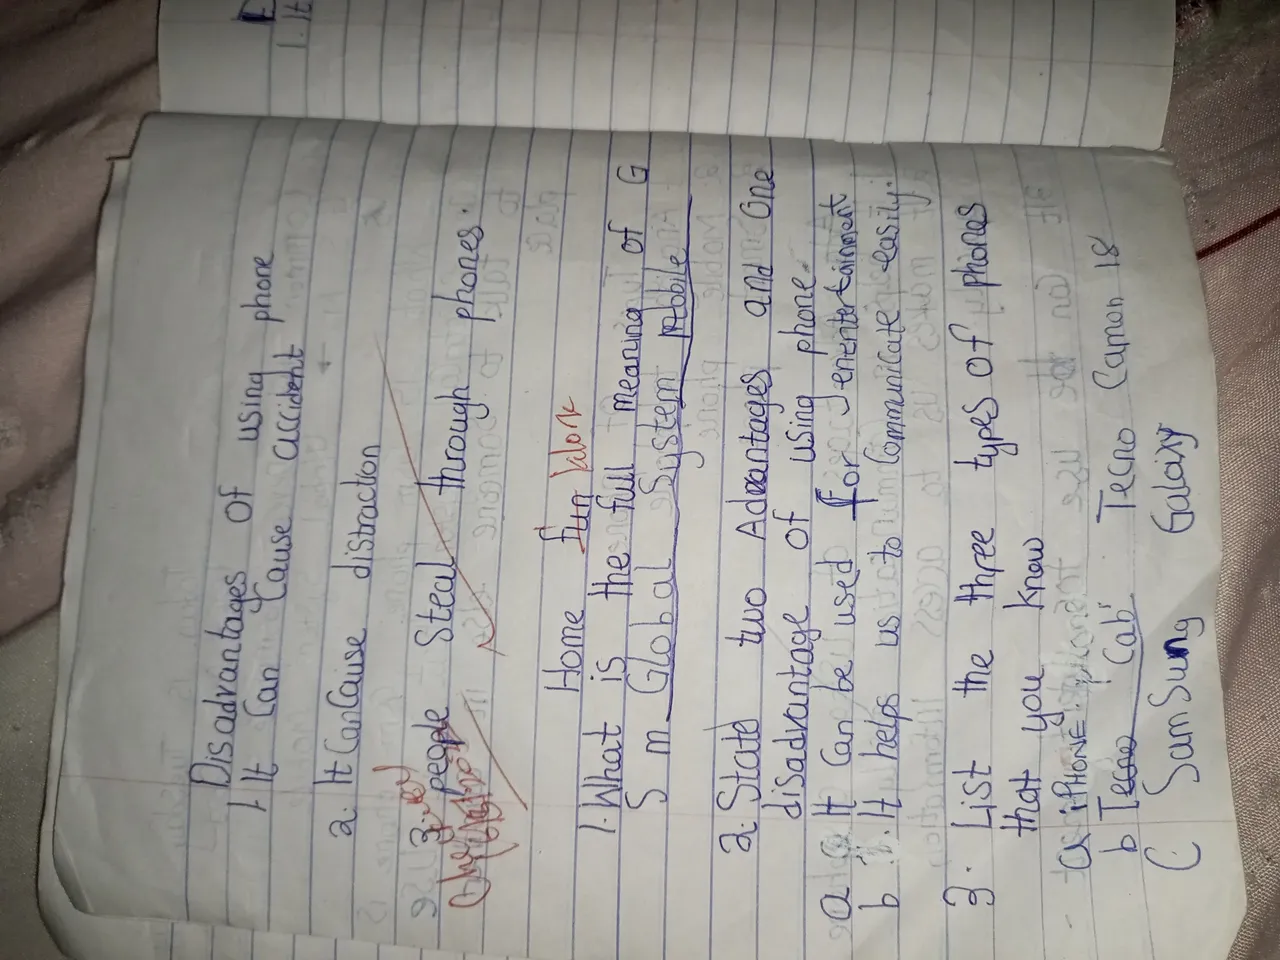 Disadvantages of using phone
1. It can cause accident
2. It can cause distraction
3. people steal through phones.
Home fun Work
1. What is the full meaning of G
S m Global System Mobile
2. State two Advantages and one
disadvantage of using phone.
a It can be used for enentertainment
b It helps us to communicate easily.
3. List the three types of phones
that you know
a iPHONE
b Tecno Cab Tecno Camon 18
C. SamSung Galaixy